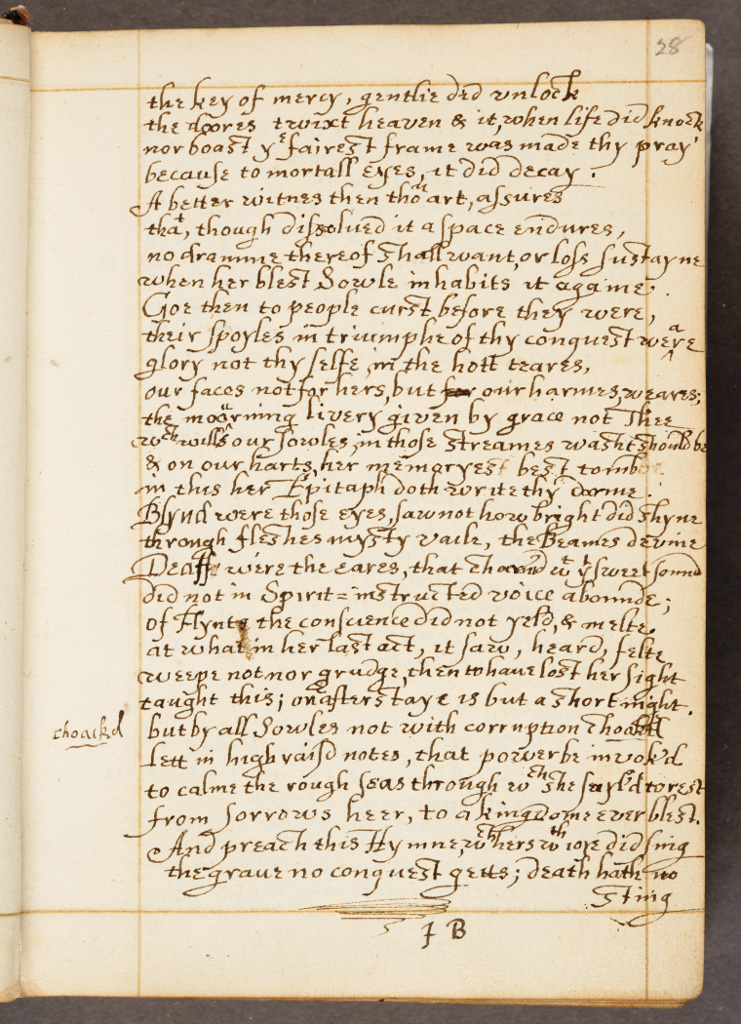 28
the key of mercy, gentlie did vnlock
the doores twixt heaven & it, when life did knock
nor boast yᵉ fairest frame was made thy pray
because to mortall eyes, it did decay.
A better witnes then thou art, assures
that, though dissolued it a space endures,
no dramme thereof shall want, or loss sustayne
when her blest Sowle inhabits it againe.
Goe then to people curst before they were,
their spoyles in triumphe of thy conquest weare
glory not thy selfe, in the hott teares,
our faces not for hers, but for our harmes, weares;
the moourning livery given by grace not Thee
wᶜʰ wills our sowles, in those streames washt should be
& on our harts, her memoryes best tombe
in this her Epitaph doth write thy dome.
Blynd were those eyes, saw not how bright did shyne
through fleshes mysty vaile, the Beames devine
Deaff were the eares, that charmd wᵗ yᵗ sweet sound
did not in Spirit=instructed voice abounde;
of Flynte the conscience did not yeld, & melte,
at what in her last act, it saw, heard, felte
weepe not nor grudge, then to haue lost her sight
taught this; our after staye is but a short night.
but by all Sowles not with corruption choakd
choackd
lett in high raisd notes, that power be invok'd
to calme the rough seas through wᶜʰ she sayl'd to rest
from sorrows heer, to a kingdome ever blest.
And preach this Hymne, wᶜʰ hers wᵗʰ ioye did sing
the graue no conquest getts; death hath no
sting
J B